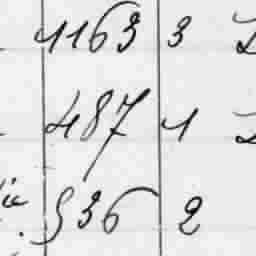 1163 3
487 1
536 2